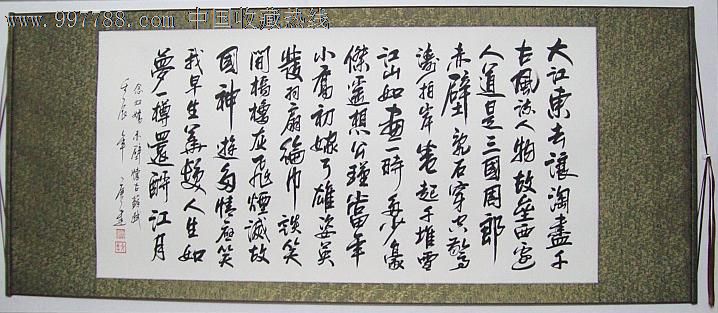 www.997788.com 中国收藏热线
大江東去讓淘盡千
古風流人物故壘西邊
人道是三國周郎
赤壁乱石穿空驚
濤拍岸卷起千堆雪
江山如畫一時多少豪
傑遥想公瑾當年
小喬初嫁了雄姿英
發羽扇綸巾談笑
間檣櫓灰飛煙滅故
國神遊多情應笑
我早生華髮人生如
夢一樽還酹江月
念奴嬌赤壁懷古蘇軾
壬辰年